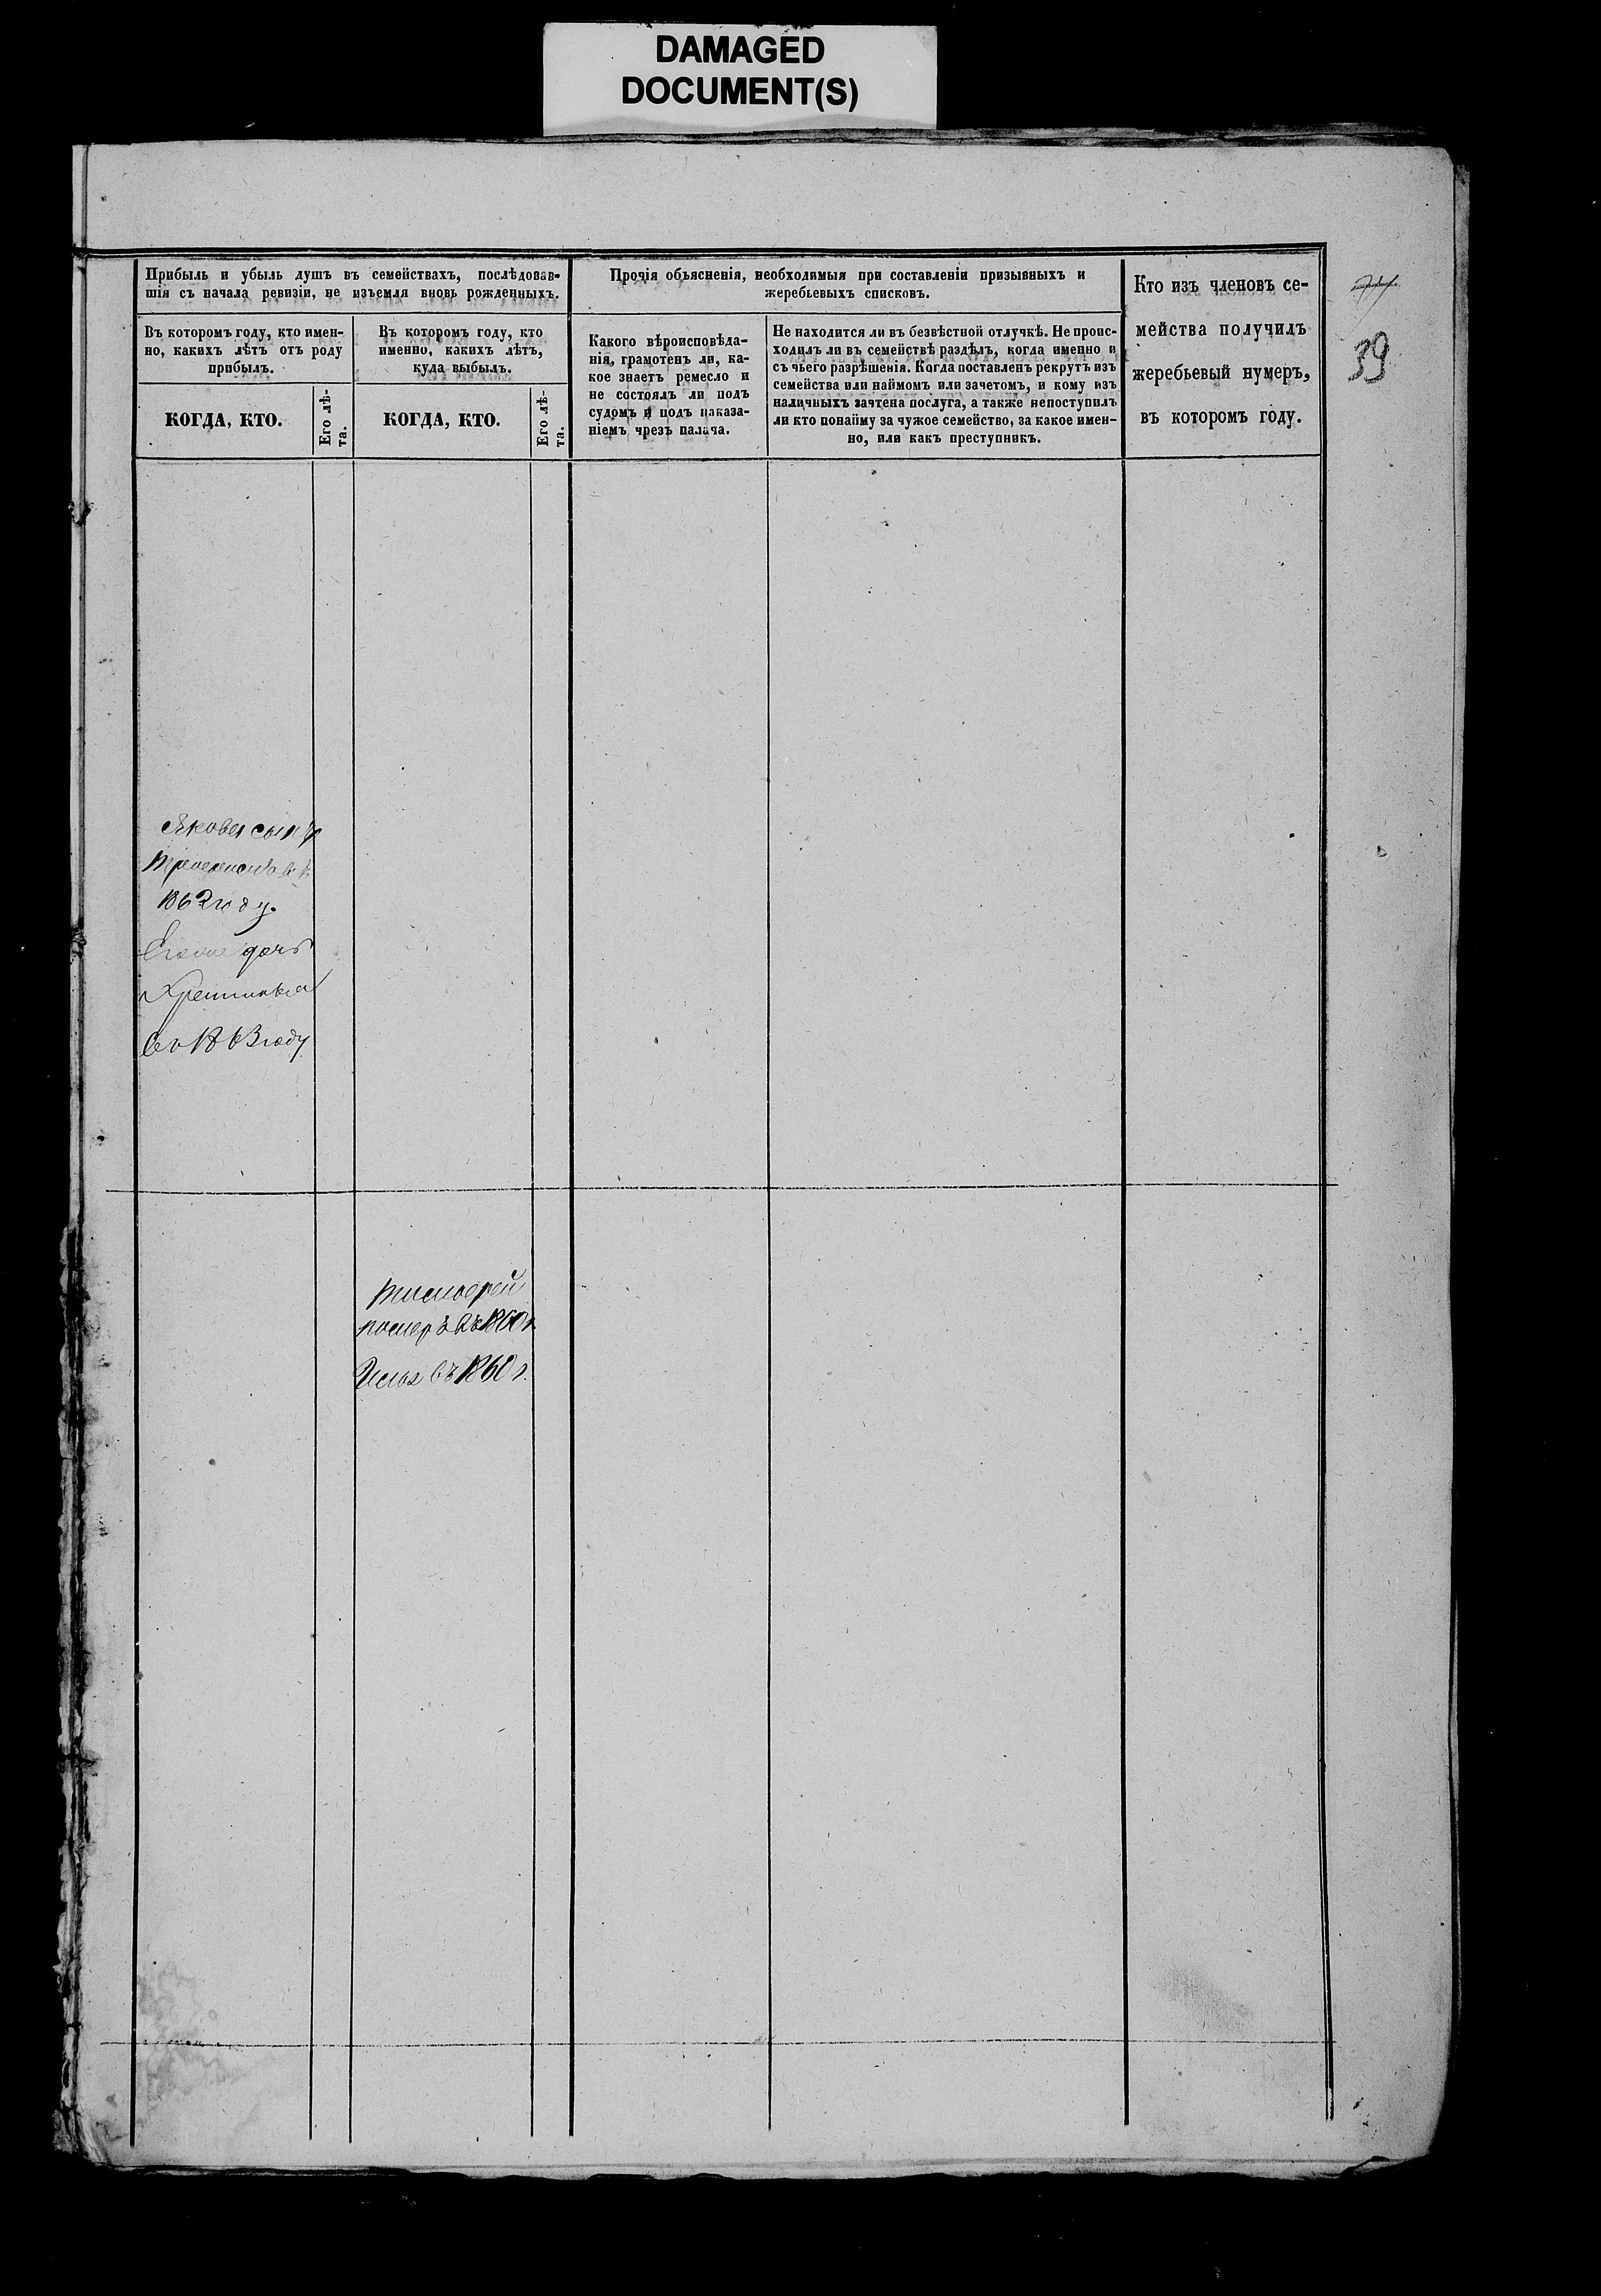 DAMAGED
DOCUMENT(S)
Прибыль и убыль душъ въ семействахъ, послѣдовав-
шія съ начала ревизіи, не изъемля вновь рожденныхъ.
Въ которомъ году, кто имен-
но, какихъ лѣтъ отъ роду
прибылъ.
КОГДА, КТО.
Его лѣ-
та.
Въ которомъ году, кто
именно, какихъ лѣтъ,
куда выбылъ.
КОГДА, КТО.
Его лѣ-
та.
Прочія объясненія, необходимыя при составленіи призывныхъ и
жеребьевыхъ списковъ.
Какого вѣроисповѣда-
нія, грамотенъ ли, ка-
кое знаетъ ремесло и
не состоялъ ли подъ
судомъ и подъ наказа-
ніемъ чрезъ палача.
Не находится ли въ безвѣстной отлучкѣ. Не проис-
ходилъ ли въ семействѣ раздѣлъ, когда именно и
съ чьего разрѣшенія. Когда поставленъ рекрутъ изъ
семейства или наймомъ или зачетомъ, и кому изъ
наличныхъ зачтена послуга, а также непоступилъ
ли кто понайму за чужое семейство, за какое имен-
но, или какъ преступникъ.
Кто изъ членовъ се-
мейства получилъ
жеребьевый нумеръ,
въ которомъ году.
39
Якова сынъ
1862 году.
дочь
году
померъ въ 1860 г
въ 1860 г.